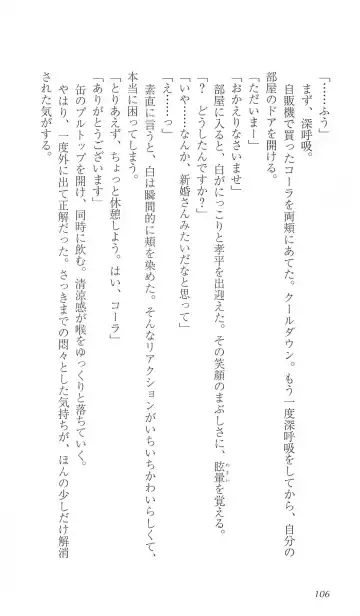 「……ふう」
まず、深呼吸。
自販機で買ったコーラを両頬にあてた。クールダウン。もう一度深呼吸をしてから、自分の
部屋のドアを開ける。
「ただいまー」
「おかえりなさいませ」
部屋に入ると、白がにっこりと孝平を出迎えた。その笑顔のまぶしさに、眩暈を覚える。
めまい
「？　どうしたんですか？」
「いや……なんか、新婚さんみたいだなと思って」
「え……っ」
素直に言うと、白は瞬間的に頬を染めた。そんなリアクションがいちいちかわいらしくて、
本当に困ってしまう。
「とりあえず、ちょっと休憩しよう。はい、コーラ」
「ありがとうございます」
缶のプルトップを開け、同時に飲む。清涼感が喉をゆっくりと落ちていく。
やはり、一度外に出て正解だった。さっきまでの悶々とした気持ちが、ほんの少しだけ解消
された気がする。
106